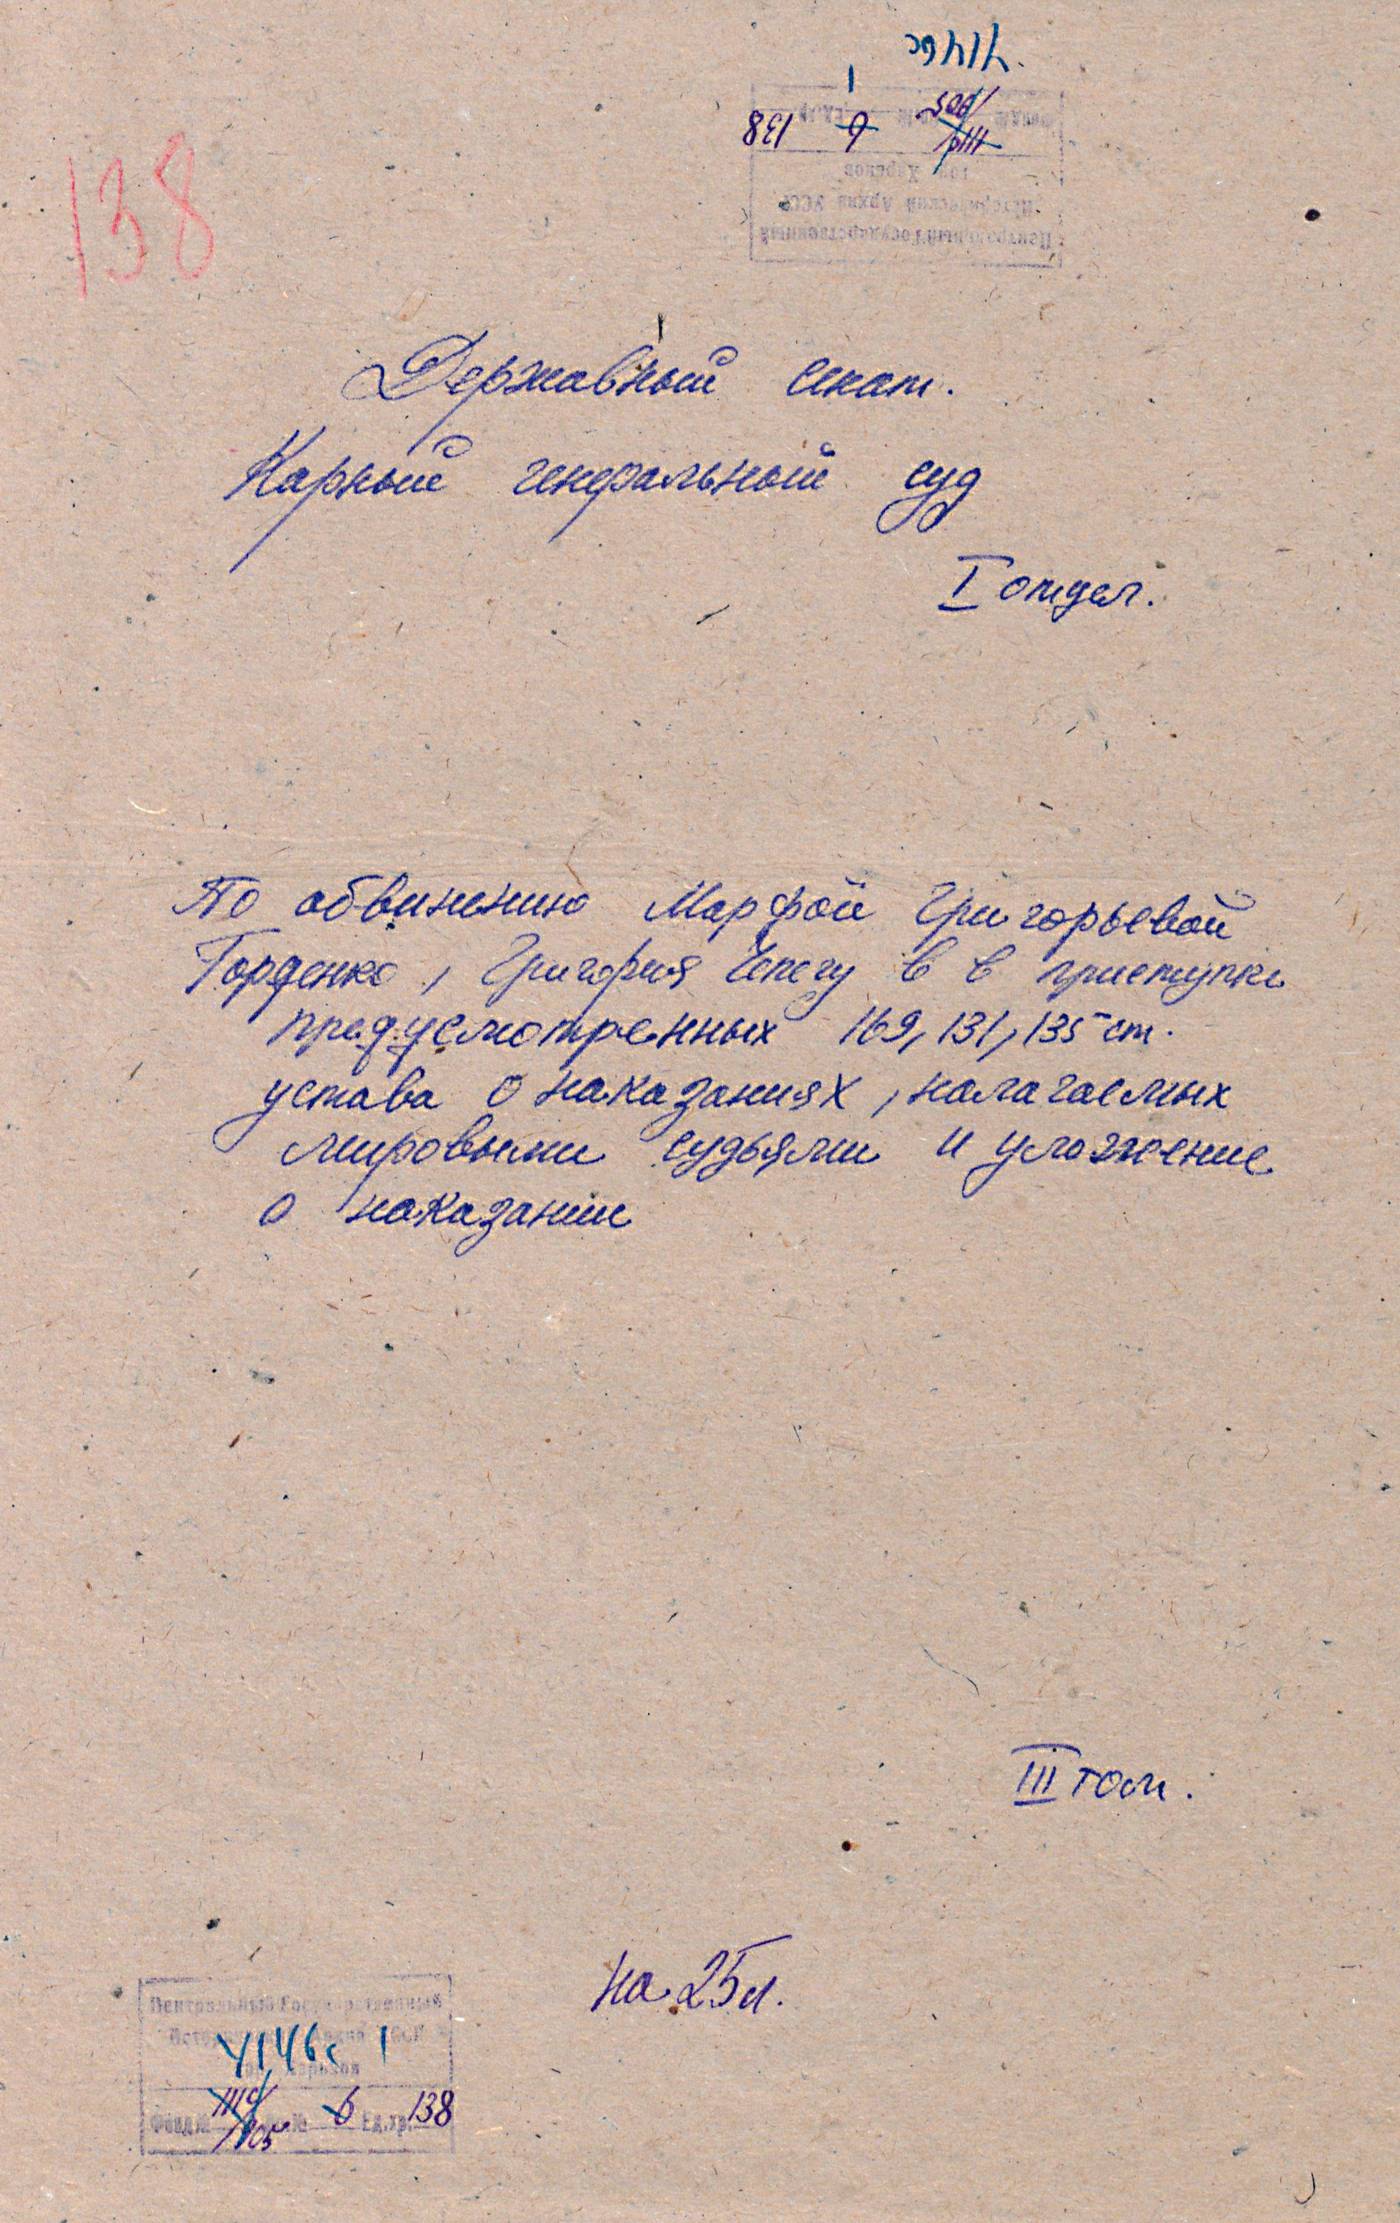 4146с
1
138 6
Центральный Государственный
Исторический Архив УССР
гор. Харьков
138
Державный сенат.
Карный генеральный суд
I отдел.
По обвинению Марфой Григорьевой
Горденко, Григория Чепегу в в приступки
предусмотренных 169, 131, 135 ст.
устава о наказаниях, налагаемых
мировыми судьями и уложение
о наказании
III том.
на 25 л.
Центральный Государственный
Исторический Архив УССР
4146с 1
гор. Харьков
Фонд № № 6 Ед.хр. 138